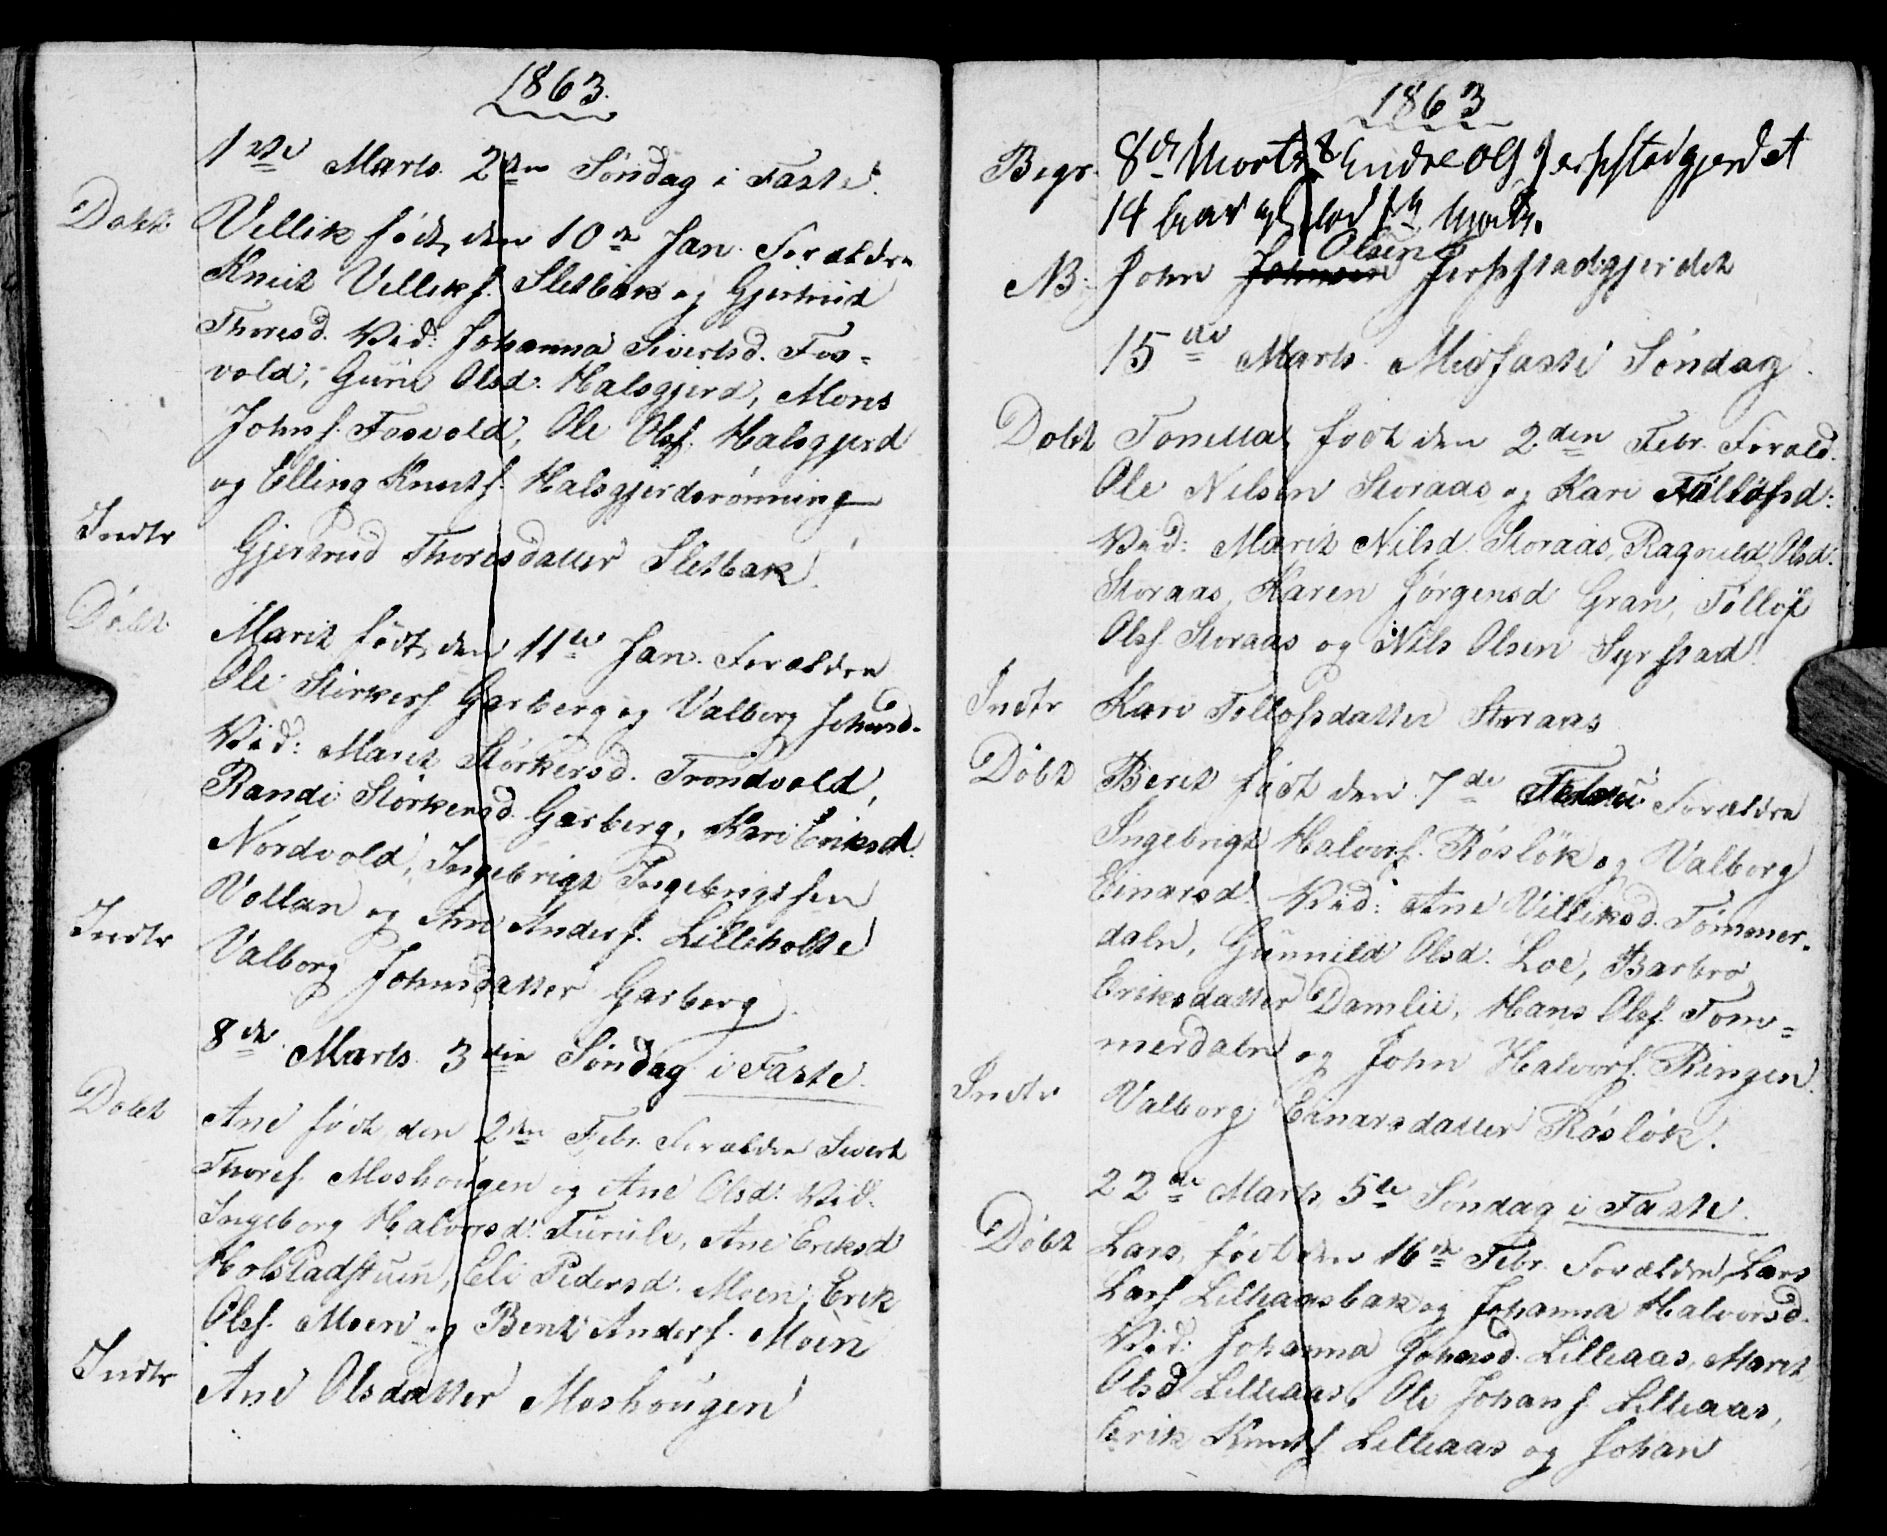 1863.
1ste Marts. 2den Søndag i Faste.
Døbt. Villik født den 10de Jan. Forældre
Knut Villiksf. Sletbak og Gjertrud
Thoresd. Vid: Johanna Sivertsd. Fos=
vold, Guru Olsd. Halsgjerd, Mons
Johnsf. Fosvold, Ole Olsf. Halsgjerd
og Elling Knutsf. Halsgjerdsrønning
Indtr Gjertrud Thoresdatter Sletbak.
Døbt Marit født den 11te Jan. Forældre
Ole Størkersf Garberg og Valborg Johnsd.
Vid: Marit Størkersd. Trondvold,
Randi Størkersd. Garberg, Kari Eriksd.
Nordvold, Ingebrigt Ingebrigtsen
Vollan og Arn Andersf. Lilleholte
Indtr Valborg Johnsdatter Garberg.
8de Marts. 3die Søndag i Faste.
Døbt Ane født den 2den Febr. Forældre Sivert
Thoresf. Moshougen og Ane Olsd. Vid.
Ingeborg Halvorsd. Furuli, Ane Eriksd
Holstadstuen, Eli Pedersd. Moen, Erik
Olsf. Moen og Bent Andersf. Moen
Indtr Ane Olsdatter Moshougen
1863
Begr. 8de Morts Endre Ols Jerpstadgjerdet
14 død Morts.
Olsen
NB: John Johnsen Jerpstadgjerdet
15de Marts. Midfaste Søndag.
Døbt Tomella født den 2den Febr. Foræld.
Ole Nilsen Storaas og Kari Tølløfsd:
Vid: Marit Nilsd. Storaas, Ragnild Olsd.
Storaas, Karen Jørgensd Gran, Tølløf
Olsf Storaas og Nils Olsen Syrstad.
Indtr Kari Tølløfsdatter Storaas
Døbt Berit født den 7de Febru. Forældre
Ingebrigt Halvorsf. Røsløk og Valborg
Einarsd. Vid: Ane Villiksd. Tømmer-
daln, Gunnild Olsd. Loe, Barbro
Eriksdatter Damlie, Hans Olsf. Tøm=
merdaln og John Halvorsf. Ringen.
Indtr Valborg Einarsdatter Røsløk.
22de Marts, 5te Søndag i Faste.
Døbt Lars, født den 16de Febr. Forældre Lars
Larsf Lilleaasbak og Johanna Halvorsd.
Vid: Johanna Johnsd. Lilleaas, Marit
Olsd Lilleaas, Ole Johansf. Lilleaas,
Erik Knutsf Lilleaas og Johan